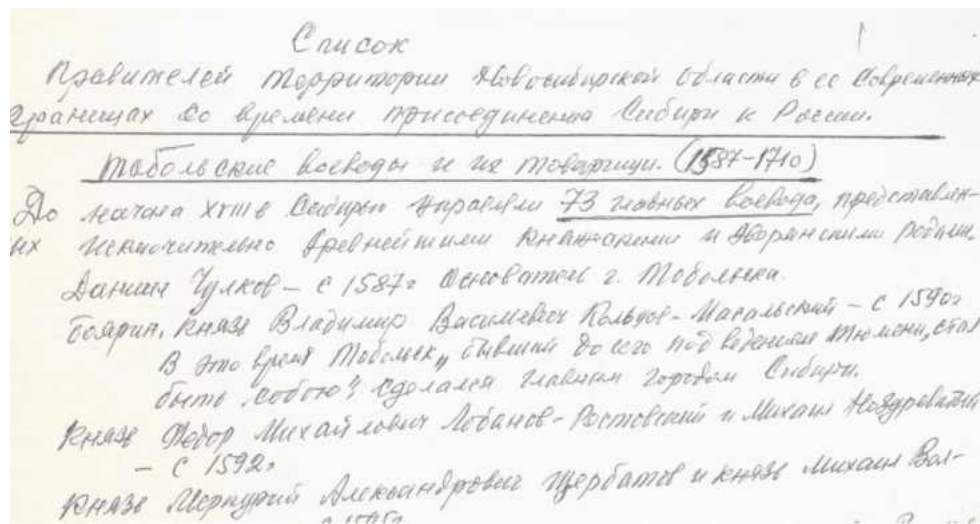 Список
Правителей территории Новосибирской области в ее современных
границах со времени присоединения Сибири к России.
Тобольские воеводы и их товарищи. (1587-1710)
До начала XVIII в Сибирью управляли 73 главных воевода, представлен-
ых исключительно древнейшими княжескими и дворянскими родами.
Даниил Чулков - с 1587г основатель г. Тобольска.
боярин, князь Владимир Васильевич Кольцов-Масальский - с 1590г
В это время Тобольск „бывший до сего под ведением Тюмени, стал
быть собою" сделался главным городом Сибири.
Князь Федор Михайлович Лобанов-Ростовский и Михаил Ноздреватый
- с 1592г
Князь Меркурий Александрович Щербатов и князь Михаил Вол-